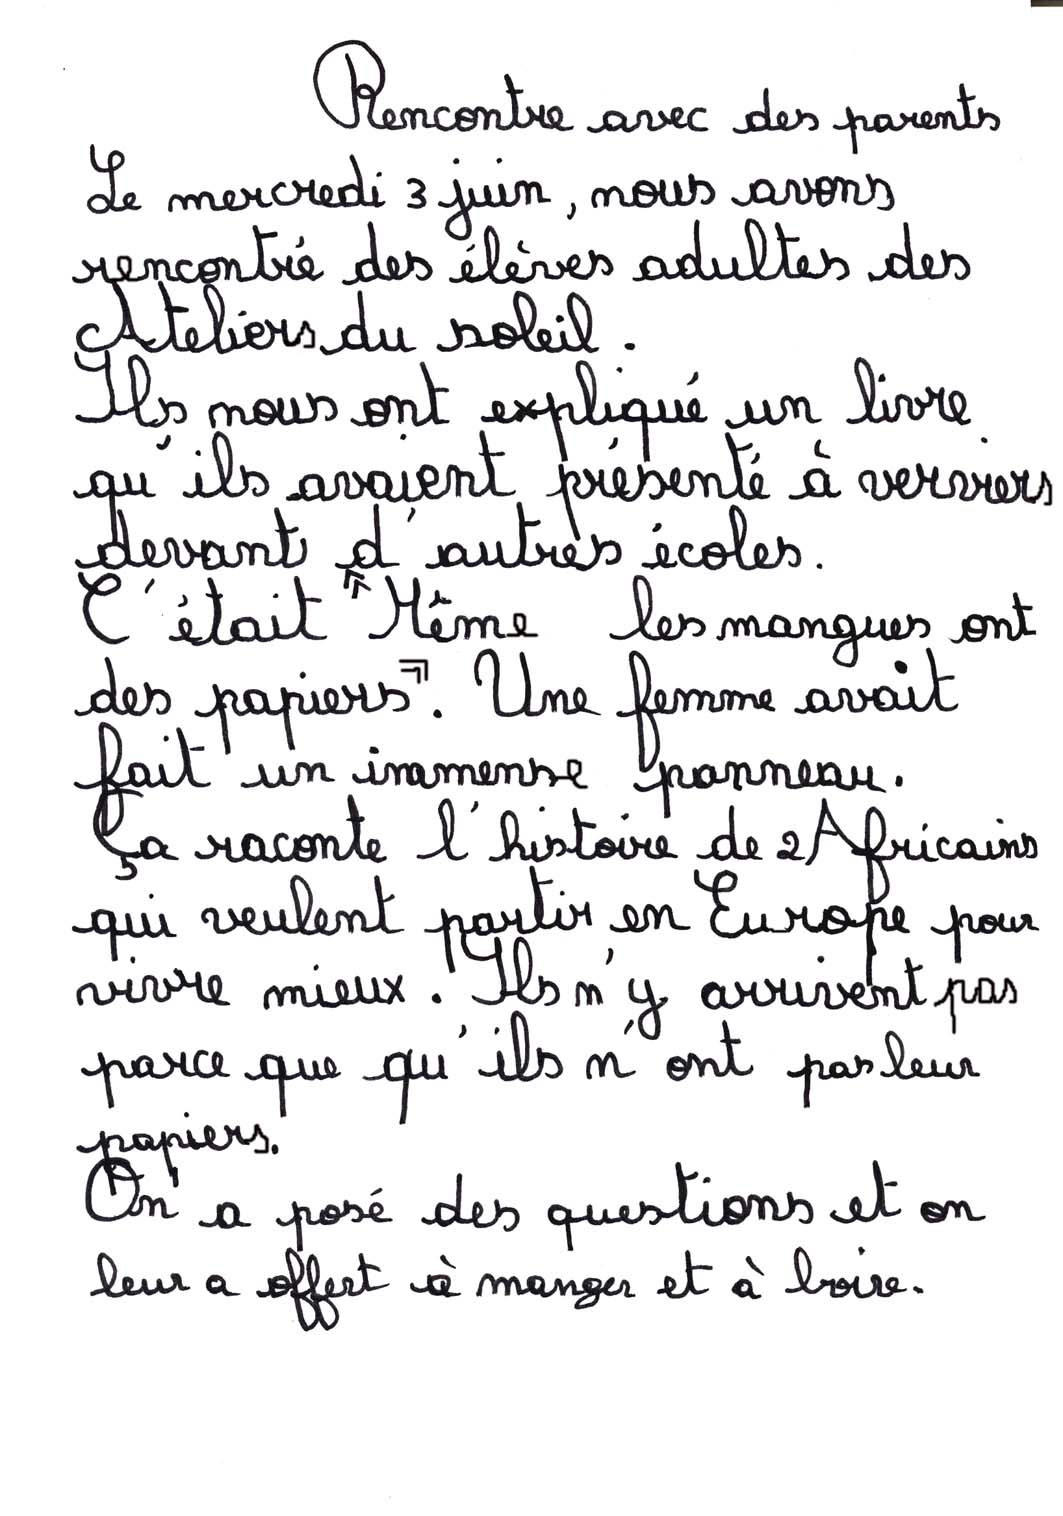 Rencontre avec des parents
Le mercredi 3 juin, nous avons
rencontré des élèves adultes des
Ateliers du soleil.
Ils nous ont expliqué un livre
qu'ils avaient présenté à verviers
devant d'autres écoles.
C'était "Même les mangues ont
des papiers". Une femme avait
fait un immense panneau.
Ça raconte l'histoire de 2 Africains
qui veulent partir en Europe pour
vivre mieux. Ils n'y arrivent pas
parce que qu'ils n'ont pas leur
papiers.
On a posé des questions et on
leur a offert à manger et à boire.